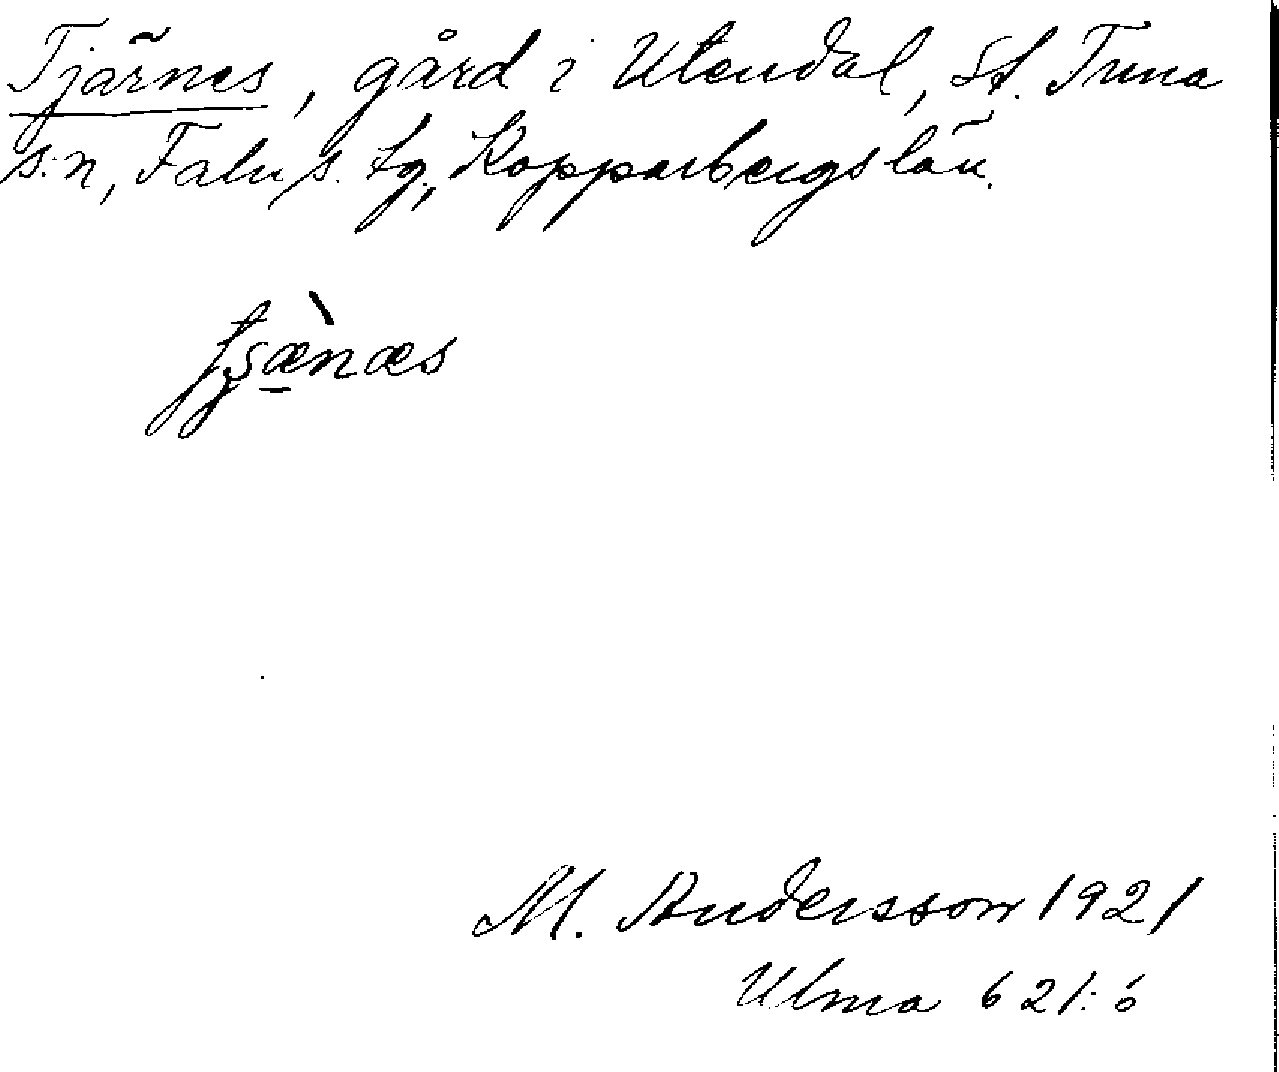 Tjärnes, gård i Utendal, St. Tuna
s:n, Falu s. tg, Kopparbergs län.
M. Andersson 1921
Ulma 621:6